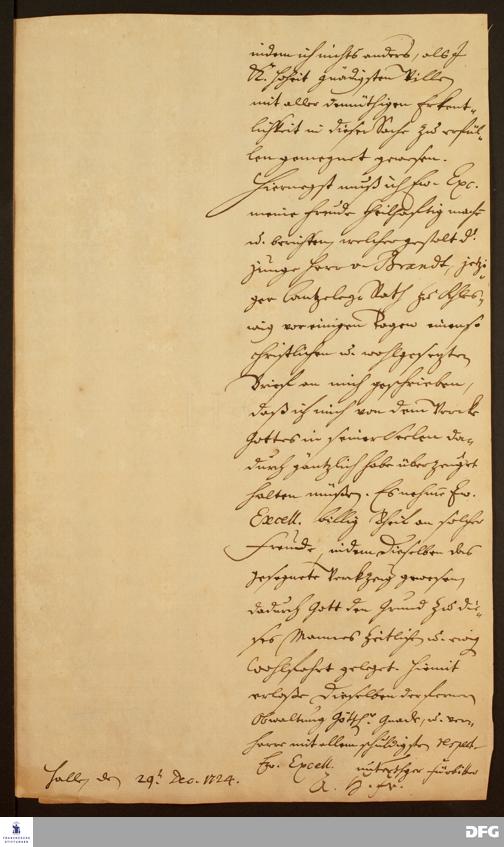 indem ich nichts anders, als J.
K. Hoheit gnädigsten Willen
mit aller demüthigen Erkent-
lichkeit in dieser Sache zu erfül-
len gemeynet gewesen.
Hiernegst muß ich Ew. Exc.
meine Freude theilhafftig mach
u. berichten, welcher gestalt d.
junge Herr von Brandt, jetzi-
ger Cantzeley-Rath zu Schles-
wig vor einigen Tagen einen so
christlichen u. wohlgesezten
Brief an mich geschrieben,
daß ich mich von dem Wercke
Gottes in seiner Seelen da-
durch gäntzlich habe überzeuget
halten müßen. Es nehmen Ew.
Excell. billig Theil an solcher
Freude, indem Dieselben das
gesegnete Werkzeug gewesen,
dadurch Gott den Grund zu die-
ses Mannes zeitlich u. ewig
Wohlfahrt geleget. Hiemit
erlaße Dieselben der fernern
Obwaltung Göttl. Gnade, u. ver-
harre mit allem schuldigsten respect
Ew. Excell.
Fürbitter
Halle den 29. Dec. 1724.
A. H. Fr.
FRANCKESCHE STIFTUNGEN
DFG